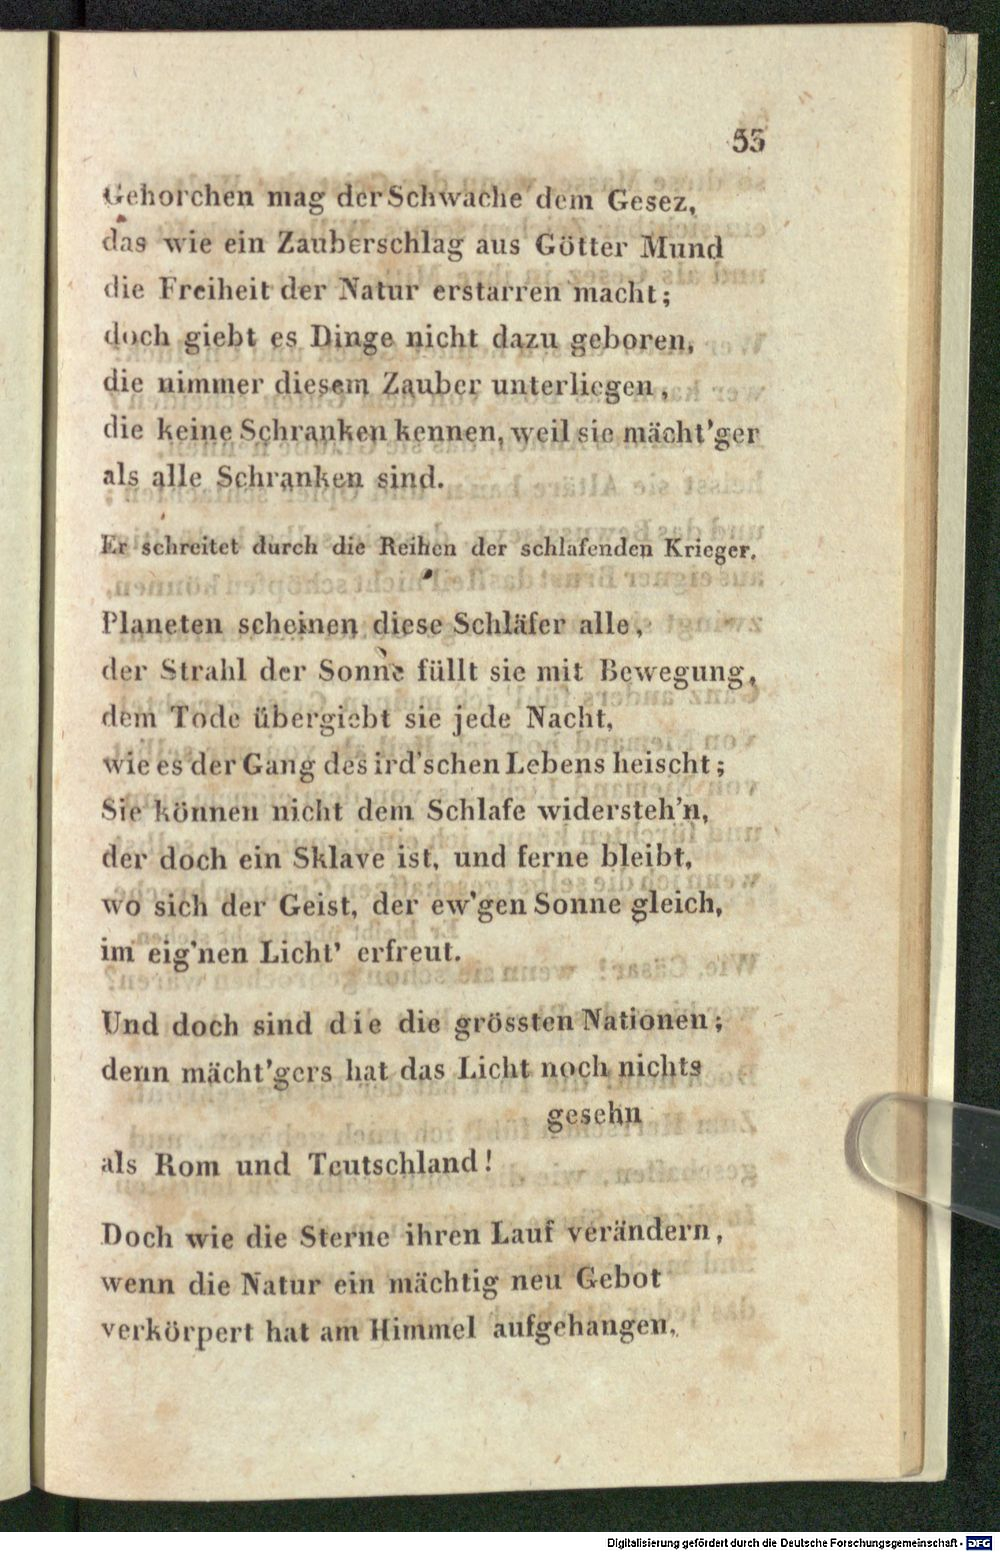 53
Gehorchen mag der Schwache dem Gesez,
das wie ein Zauberschlag aus Götter Mund
die Freiheit der Natur erstarren macht;
doch giebt es Dinge nicht dazu geboren,
die nimmer diesem Zauber unterliegen,
die keine Schranken kennen, weil sie mächt'ger
als alle Schranken sind.
Er schreitet durch die Reihen der schlafenden Krieger.
Planeten scheinen diese Schläfer alle,
der Strahl der Sonne füllt sie mit Bewegung,
dem Tode übergiebt sie jede Nacht,
wie es der Gang des ird'schen Lebens heischt;
Sie können nicht dem Schlafe widersteh'n,
der doch ein Sklave ist, und ferne bleibt,
wo sich der Geist, der ew'gen Sonne gleich,
im eig'nen Licht' erfreut.
Und doch sind die die grössten Nationen;
denn mächt'gers hat das Licht noch nichts
gesehn
als Rom und Teutschland!
Doch wie die Sterne ihren Lauf verändern,
wenn die Natur ein mächtig neu Gebot
verkörpert hat am Himmel aufgehangen,
Digitalisierung gefördert durch die Deutsche Forschungsgemeinschaft - DFG